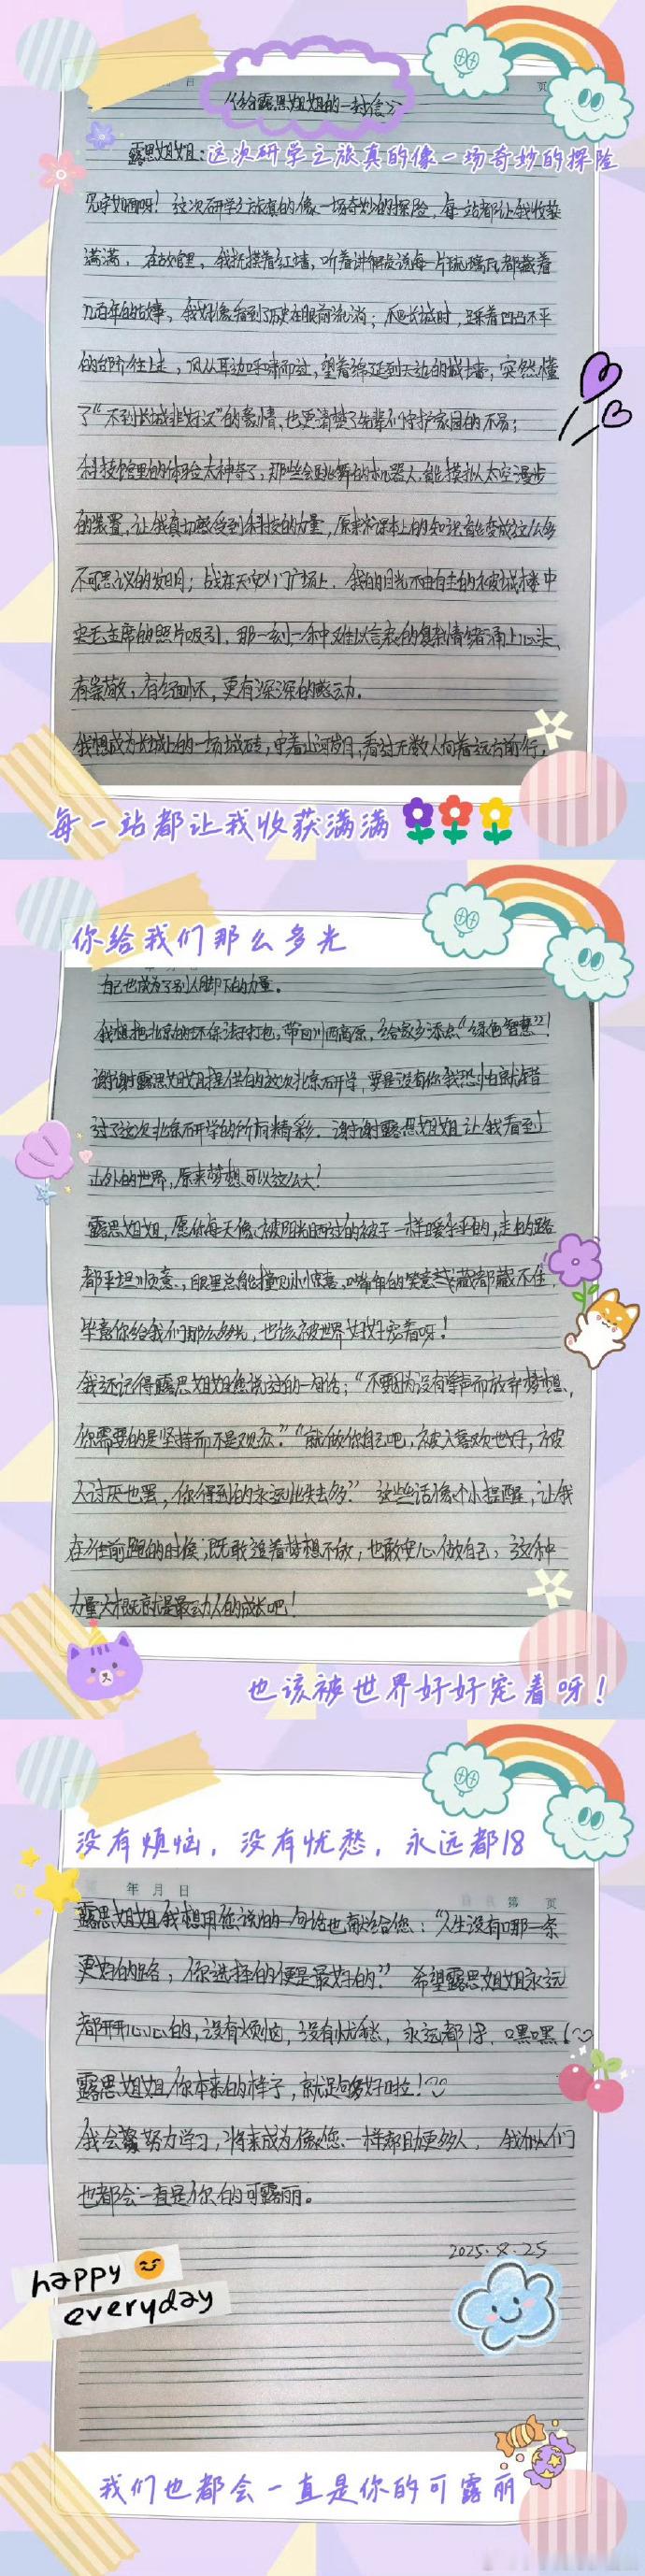 日
页
《给露思姐姐的一封信》
露思姐姐:这次研学之旅真的像一场奇妙的探险
见字如晤呀!这次研学之旅真的像一场奇妙的探险,每一站都让我收获
满满。在故宫里,我抚摸着红墙,听着讲解员说每一片琉璃瓦都藏着
几百年的故事,我好像看到了历史在眼前流淌;爬长城时,踩着凹凸不平
的台阶往上走,风从耳边呼啸而过,望着绵延到天边的城墙,突然懂
了“不到长城非好汉”的豪情,也更清楚了先辈们守护家园的不易;
科技馆里的体验太神奇了,那些会跳舞的机器人,能模拟太空漫步
的装置,让我真切感受到科技的力量,原来课本上的知识能变成这么多
不可思议的发明;站在天安门广场上,我的目光不由自主的被城楼中
央毛主席的照片吸引,那一刻一种难以言表的复杂情绪涌上心头,
有崇敬,有缅怀,更有深深的感动。
我想成为长城上的一块城砖,守着山河岁月,看过无数人向着远方前行,
每一站都让我收获满满
你给我们那么多光
自己也成为了别人脚下的力量。
我想把北京的环保法子打包,带回川西高原,给家乡添点“绿色智慧”!
谢谢露思姐姐提供的这次北京研学,要是没有你我恐怕就错
过了这次北京研学的所有精彩。谢谢露思姐姐让我看到
山外的世界,原来梦想可以这么大!
露思姐姐,愿你每天像被阳光晒过的被子一样暖乎乎的,走的路
都平坦顺意,眼里总能撞见小惊喜,嘴角的笑意藏都藏不住,
毕竟你给我们那么多光,也该被世界好好宠着呀!
我还记得露思姐姐您说过的一句话:“不要因为没有掌声而放弃梦想,
你需要的是坚持而不是观众。”“就做你自己吧,被人喜欢也好,被
人讨厌也罢,你得到的永远比失去多。”这些话像个小提醒,让我
在往前跑的时候,既敢追着梦想不放,也敢安心做自己,这种
力量大概就是最动人的成长吧!
也该被世界好好宠着呀!
没有烦恼,没有忧愁,永远都18
年 月 日
第 页
露思姐姐我想用您说的一句话也献给您:“人生没有哪一条
更好的路,你选择的便是最好的。”希望露思姐姐永远
都开开心心的,没有烦恼,没有忧愁,永远都18,嘿嘿!
露思姐姐,你本来的样子,就足够好啦!
我会努力学习,将来成为像您一样帮助更多人,我们
也都会一直是你的可露丽。
2025.8.25
happy
everyday
我们也都会一直是你的可露丽